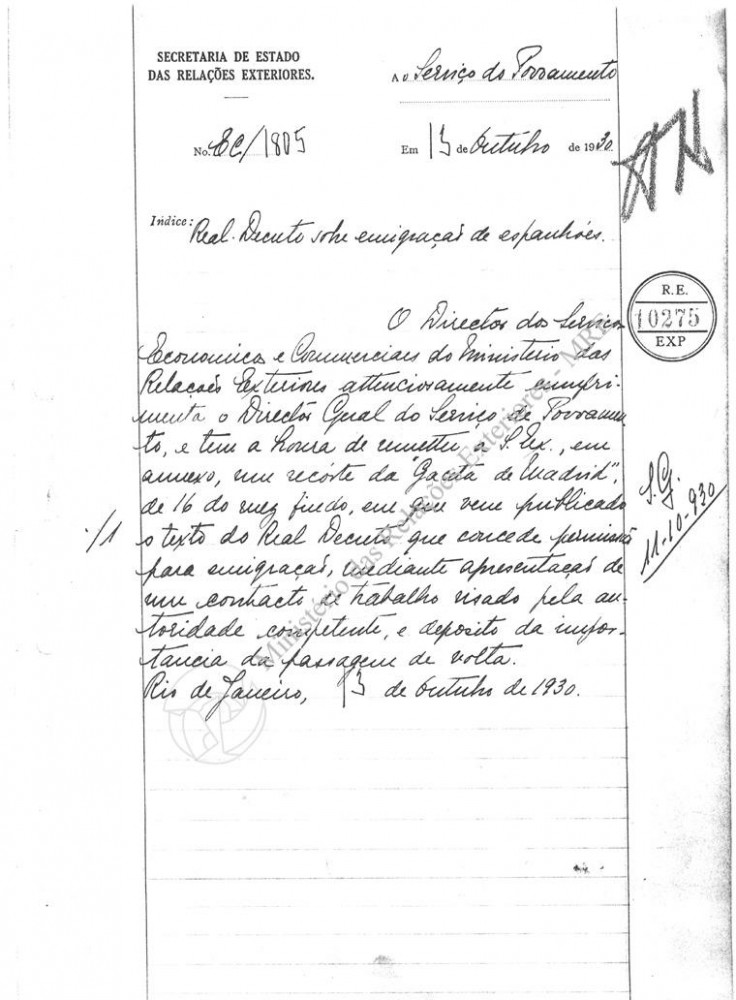 SECRETARIA DE ESTADO
DAS RELAÇÕES EXTERIORES.
Ao Serviço do Povoamento
No. EC/1805
Em 13 de Outubro de 1930.
Indice: Real-Decreto sobre emigração de espanhóes.
R.E.
10275
EXP
O Director dos Serviços
Economicos e Commerciaes do Ministerio das
Relações Exteriores attenciosamente cumpri-
menta o Director Geral do Serviço de Povoamen
to, e tem a honra de remetter a S. Ex., em
annexo, um recórte da "Gaceta de Madrid",
de 16 do mez findo, em que vem publicado
./1 o texto do Real Decreto que concede permissão
para emigração, mediante apresentação de
um contracto de trabalho visado pela au-
toridade competente, e deposito da impor-
tancia da passagem de volta.
Rio de Janeiro, 13 de Outubro de 1930.
S.G.
11-10-930
Ministério das Relações Exteriores - MRE